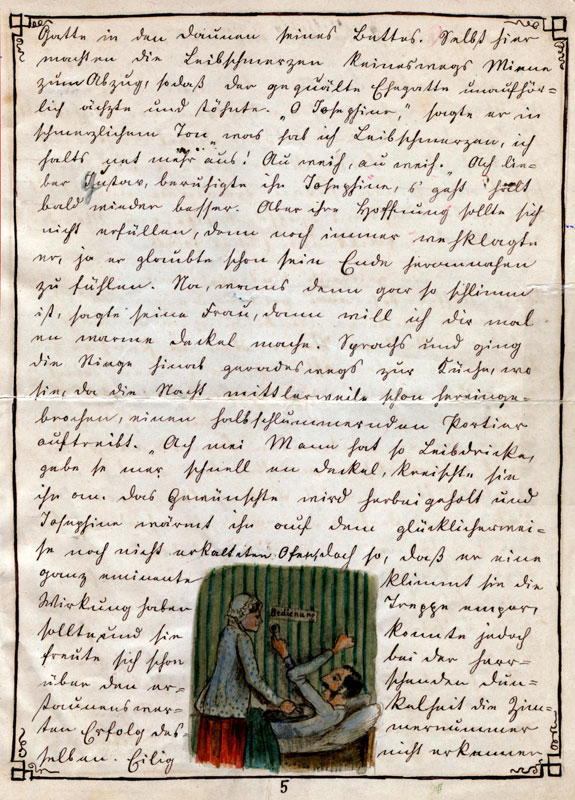 Gatte in den Daunen seines Bettes. Selbst hier
machten die Leibschmerzen keineswegs Miene
zum Abzug, sodaß der gequälte Ehegatte unaufhör-
lich ächzte und stöhnte. „O Josephine," sagte er in
schmerzlichem Ton „was hab ich Leibschmerzen, ich
halts net mehr aus! Au weih, au weih." Ach lie-
ber Gustav, beruhigte ihn Josephine, s' geht halt
bald wieder besser. Aber ihre Hoffnung sollte sich
nicht erfüllen, denn noch immer wehklagte
er, ja er glaubte schon sein Ende herannahen
zu fühlen. Na, wenns denn gar so schlimm
ist, sagte seine Frau, dann will ich dir mal
en warme Deckel mache. Sprachs und ging
die Stiege hinab geradeswegs zur Küche, wo
sie, da die Nacht mittlerweile schon hereinge-
brochen, einen halbschlummernden Portier
auftreibt. „Ach mei Mann hat so Leibdricke,
gebe se mer schnell en Deckel, kreischte sie
ihn an. Das Gewünschte wird herbeigeholt und
Josephine wärmt ihn auf dem glücklicherwei-
se noch nicht erkalteten Ofen, doch so, daß er eine
ganz eminente
Wirkung haben
sollte und sie
freute sich schon
über den er-
staunenswer-
ten Erfolg des-
selben. Eilig
Bedienung
klimmt sie die
Treppe empor,
konnte jedoch
bei der herr-
schenden Dun-
kelheit die Zim-
mernummer
nicht erkennen
5